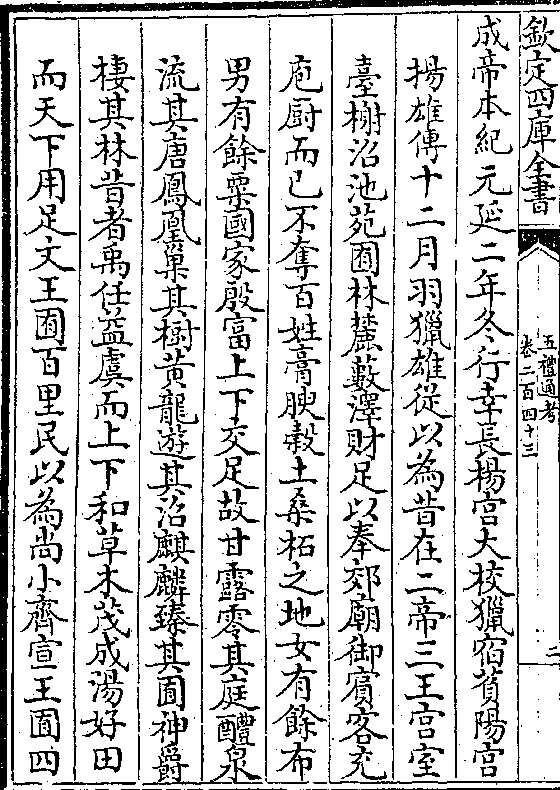 欽定四庫全書
五禮通考
卷二百四十三
二
成帝本紀元延二年冬行幸長楊宮大校獵宿萯陽宮
揚雄傳十二月羽獵雄從以為昔在二帝三王宮室
臺榭沼池苑囿林麓藪澤財足以奉郊廟御賓客充
庖厨而已不奪百姓膏腴榖土桑柘之地女有餘布
男有餘粟國家殷富上下交足故甘露零其庭醴泉
流其唐鳳凰巢其樹黄龍遊其沼麒麟臻其囿神爵
棲其林昔者禹任益虞而上下和草木茂成湯好田
而天下用足文王囿百里民以為尚小齊宣王囿四